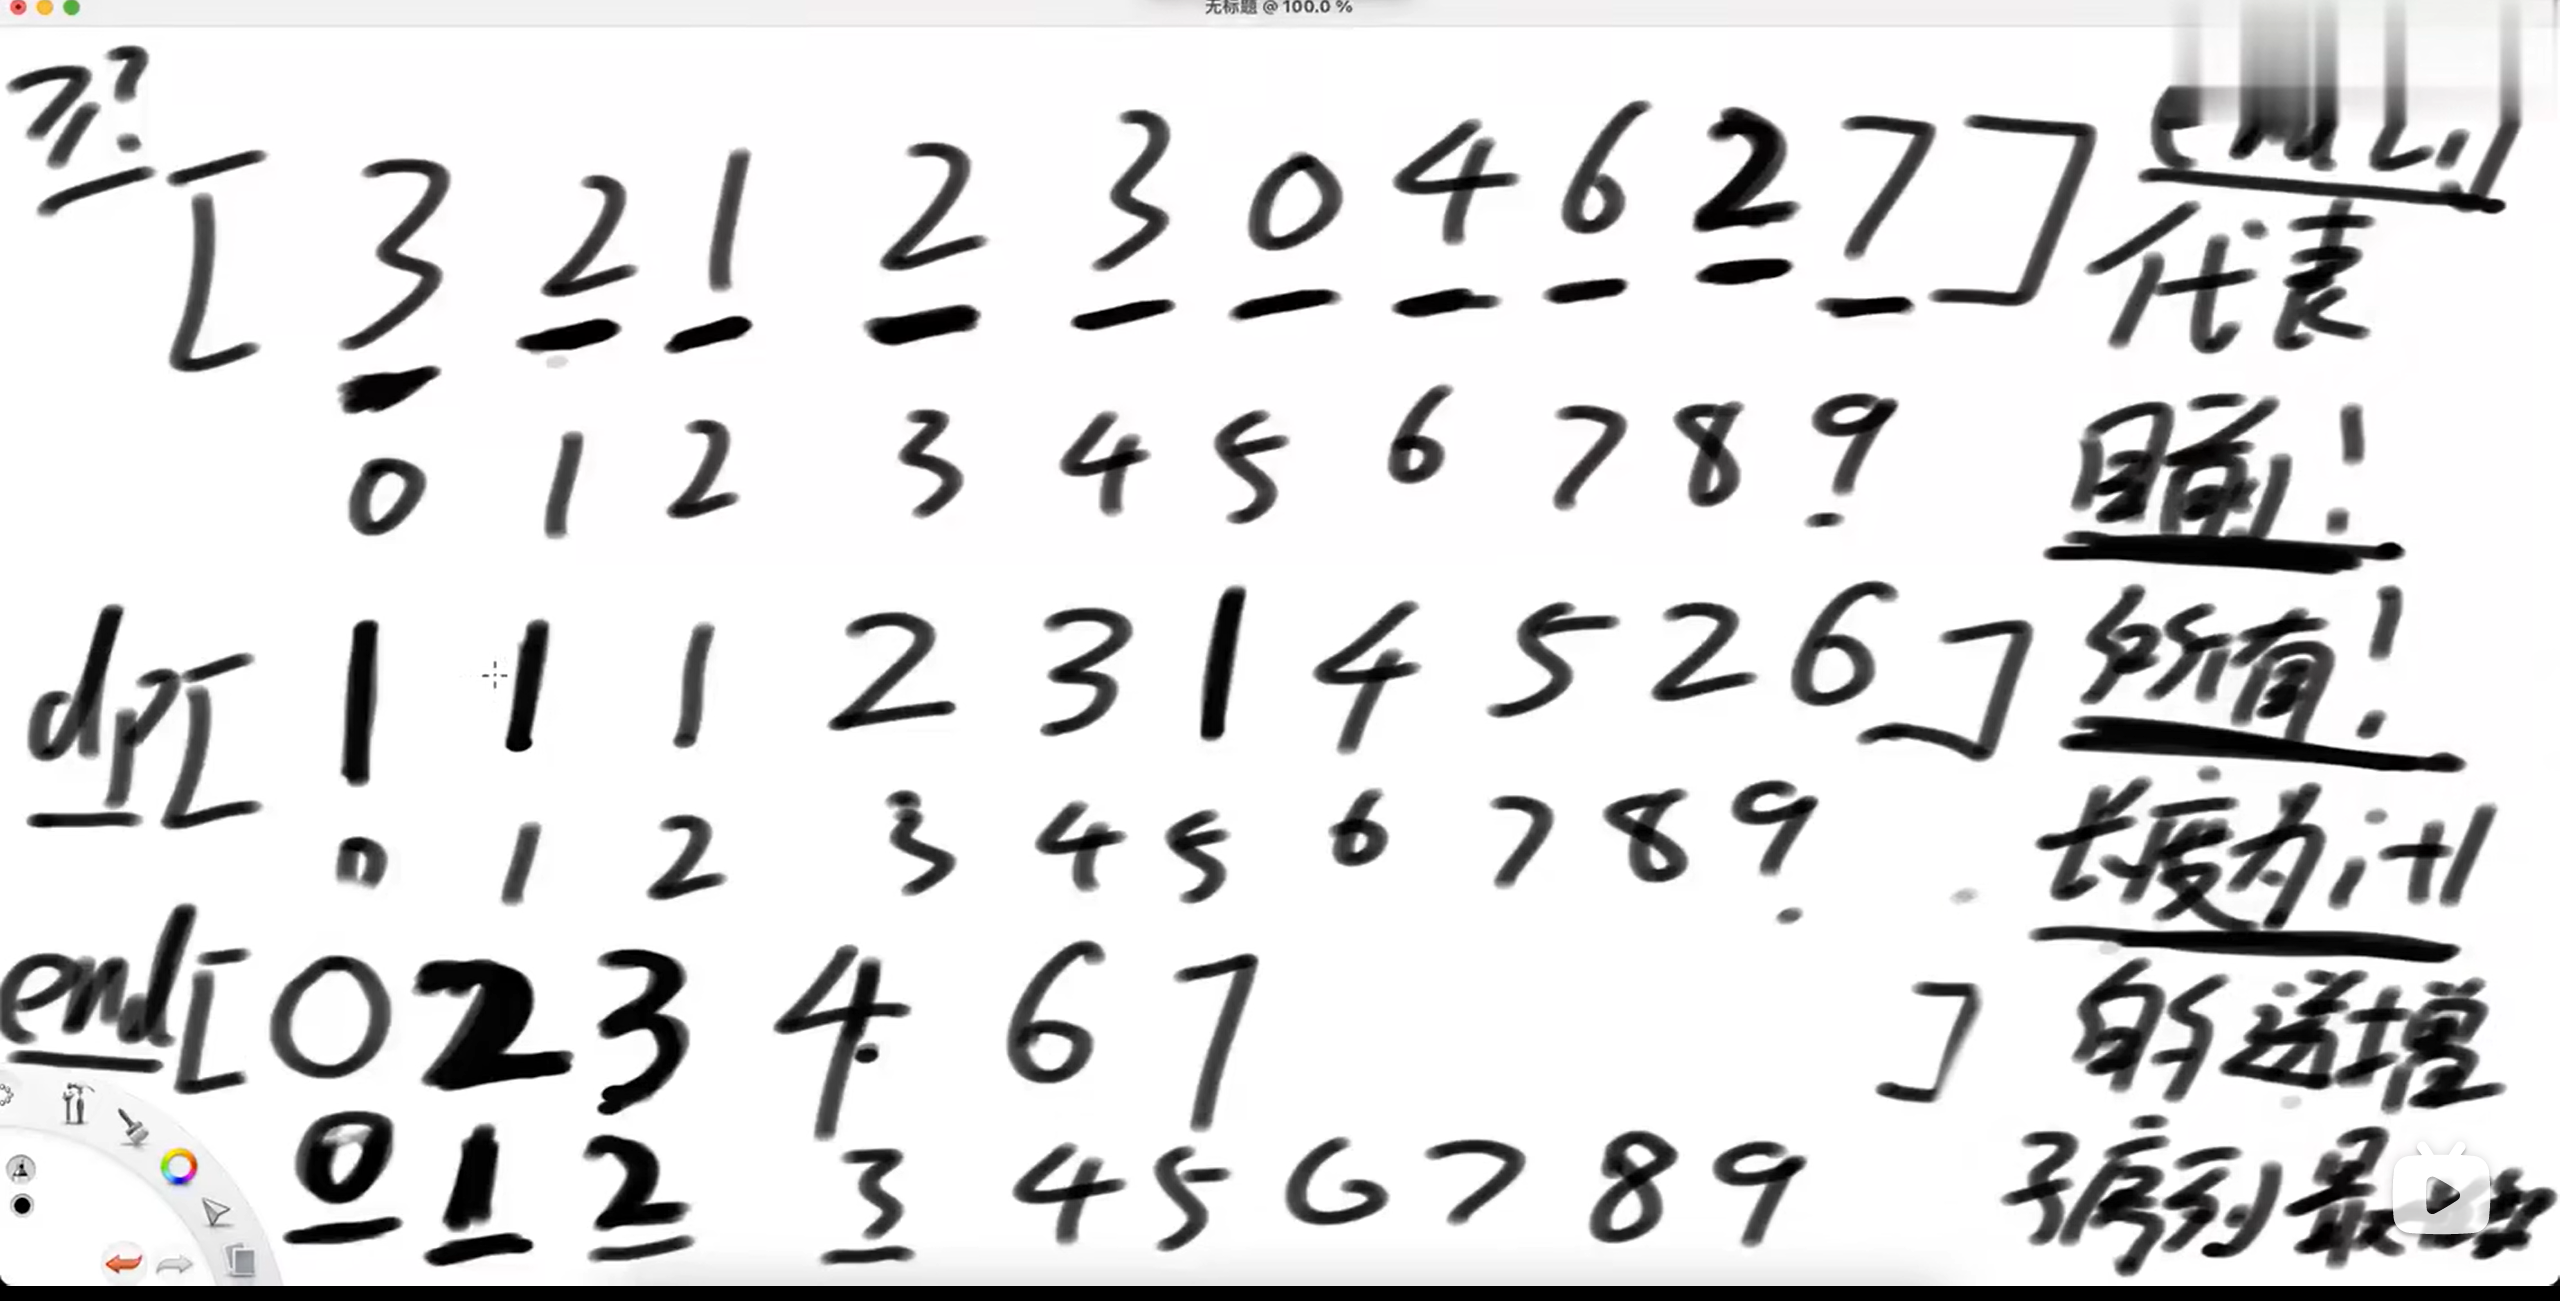 无标题 @ 100.0 %
≥?
[ 3 2 1 2 3 0 4 6 2 7 ]
0 1 2 3 4 5 6 7 8 9
dp[ 1 1 1 2 3 1 4 5 2 6 ]
0 1 2 3 4 5 6 7 8 9
end[ 0 2 3 4 6 7 ]
0 1 2 3 4 5 6 7 8 9
end[i]
代表
目前!
所有!
长度为i+1
的递增
子序列最